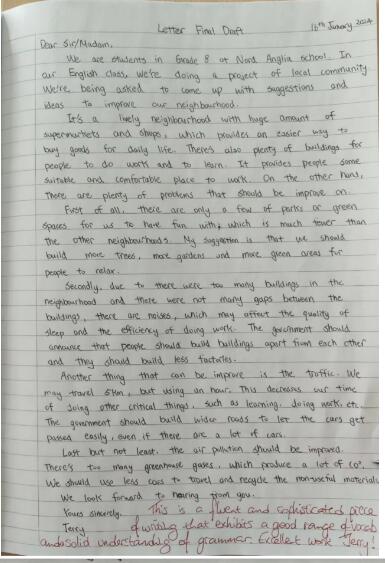 Letter Final Draft
16th January 2024
Dear Sir/Madam,
We are students in Grade 8 at Nord Anglia school. In
our English class, we're doing a project of local community.
We're being asked to come up with suggestions and
ideas to improve our neighbourhood.
It's a lively neighbourhood with huge amount of
supermarkets and shops, which provides an easier way to
buy goods for daily life. There's also plenty of buildings for
people to do work and to learn. It provides people some
suitable and comfortable place to work. On the other hand,
There are plenty of problems that should be improve on.
First of all, there are only a few of parks or green
spaces for us to have fun with, which is much fewer than
the other neighbourhoods. My suggestion is that we should
build more trees, more gardens and more green areas for
people to relax.
Secondly, due to there were too many buildings in the
neighbourhood and there were not many gaps between the
buildings, there are noises, which may affect the quality of
sleep and the efficiency of doing work. The government should
announce that people should build buildings apart from each other
and they should build less factories.
Another thing that can be improve is the traffic. We
may travel 5km, but using an hour. This decreases our time
of doing other critical things, such as learning, doing work, etc.
The government should build wider roads to let the cars get
passed easily, even if there are a lot of cars.
Last but not least, the air pollution should be improved.
There's too many greenhouse gases, which produce a lot of CO².
We should use less cars to travel and recycle the non-useful materials.
We look forward to hearing from you.
Yours sincerely,
Jerry
This is a fluent and sophisticated piece
of writing that exhibits a good range of vocab
and solid understanding of grammar. Excellet work Jerry!